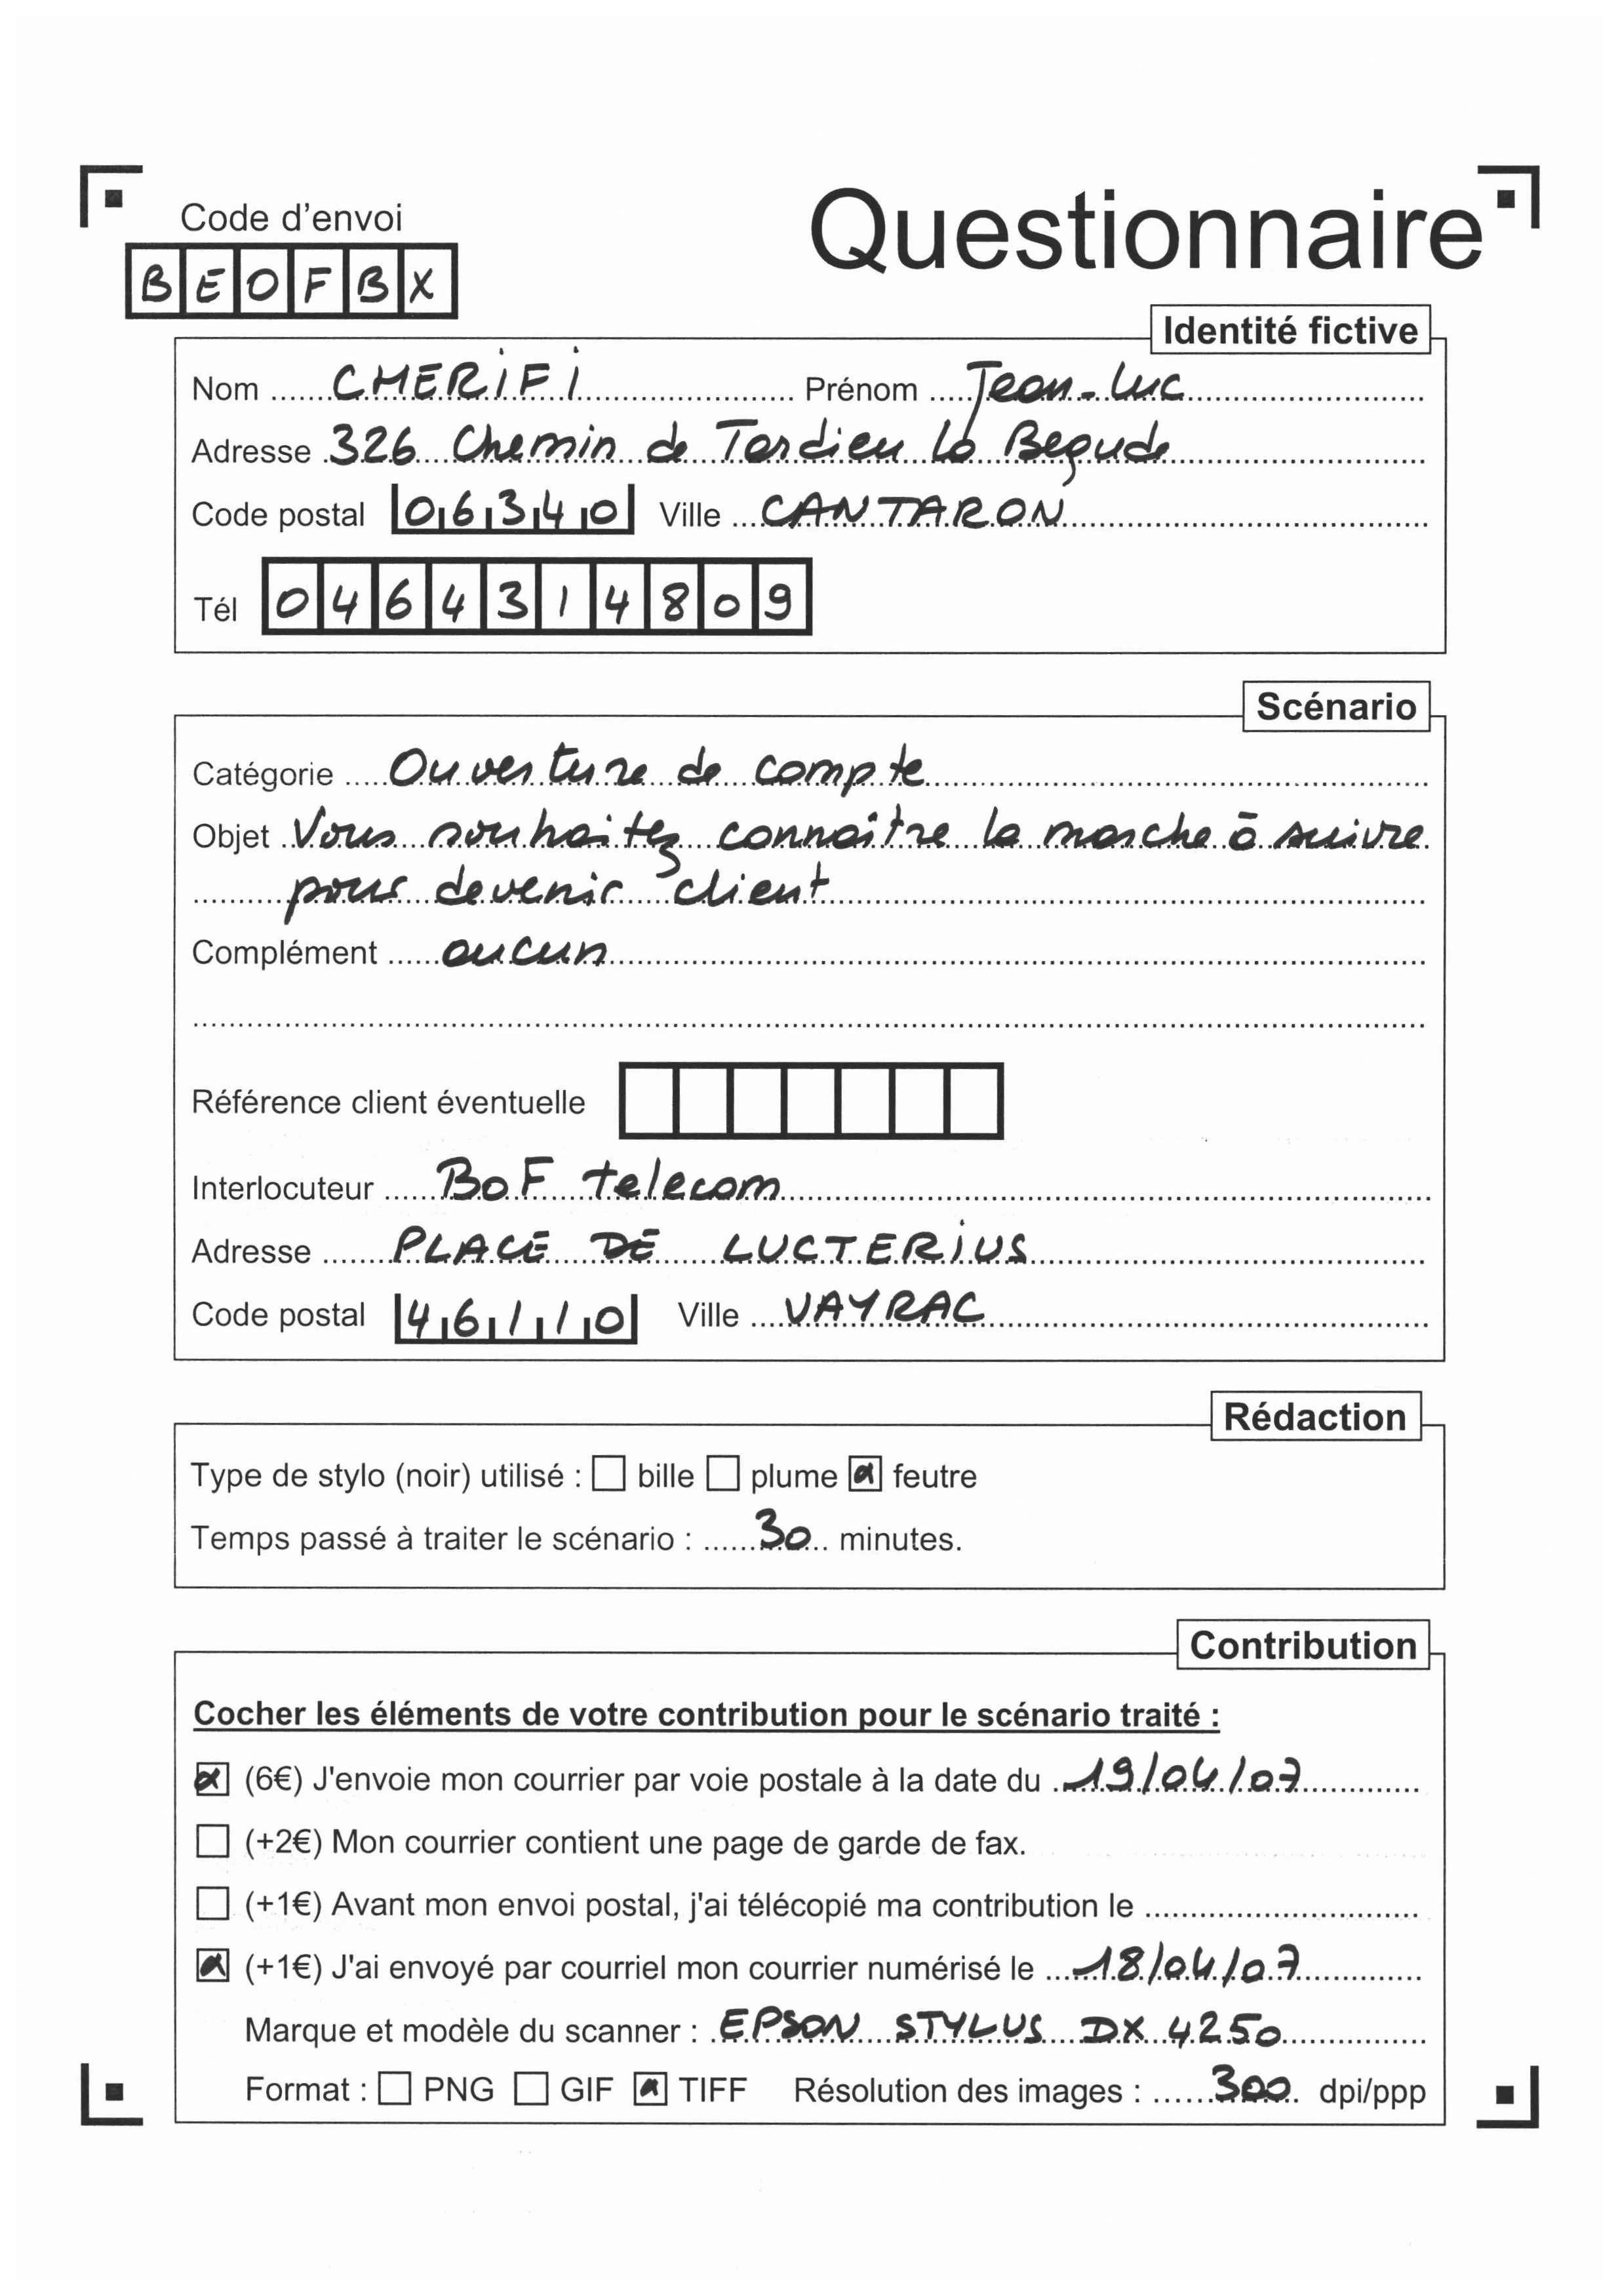 Questionnaire
Code d'envoi
BEOFBX
Identité fictive
Nom CHERIFI Prénom Jean-Luc
Adresse 326 Chemin de Tardieu la Begude
Code postal 06340 Ville CANTARON
Tél 0464314809
Scénario
Catégorie Ouverture de compte
Objet Vous souhaitez connaître la marche à suivre
pour devenir client
Complément aucun
Référence client éventuelle
Interlocuteur BoF telecom
Adresse PLACE DE LUCTERIUS
Code postal 46110 Ville VAYRAC
Rédaction
Type de stylo (noir) utilisé : bille plume feutre
Temps passé à traiter le scénario : 30 minutes.
Contribution
Cocher les éléments de votre contribution pour le scénario traité :
(6€) J'envoie mon courrier par voie postale à la date du 19/04/07
(+2€) Mon courrier contient une page de garde de fax.
(+1€) Avant mon envoi postal, j'ai télécopié ma contribution le
(+1€) J'ai envoyé par courriel mon courrier numérisé le 18/04/07
Marque et modèle du scanner : EPSON STYLUS DX 4250
Format : PNG GIF TIFF Résolution des images : 300 dpi/ppp